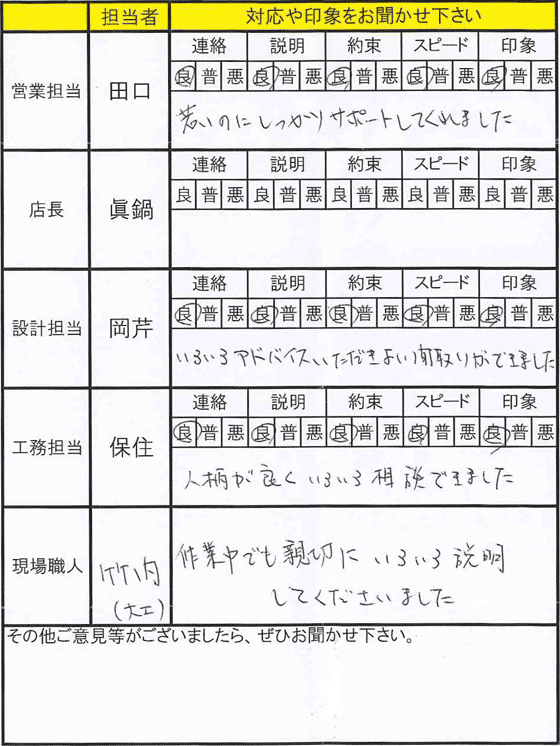 担当者 対応や印象をお聞かせ下さい
営業担当 田口
連絡 説明 約束 スピード 印象
良 普 悪 良 普 悪 良 普 悪 良 普 悪 良 普 悪
若いのにしっかりサポートしてくれました
店長 眞鍋
連絡 説明 約束 スピード 印象
良 普 悪 良 普 悪 良 普 悪 良 普 悪 良 普 悪
設計担当 岡芹
連絡 説明 約束 スピード 印象
良 普 悪 良 普 悪 良 普 悪 良 普 悪 良 普 悪
いろいろアドバイスいただきよい間取りができました
工務担当 保住
連絡 説明 約束 スピード 印象
良 普 悪 良 普 悪 良 普 悪 良 普 悪 良 普 悪
人柄が良くいろいろ相談できました
現場職人 竹内
(大工)
作業中でも親切にいろいろ説明
してくださいました
その他ご意見等がございましたら、ぜひお聞かせ下さい。